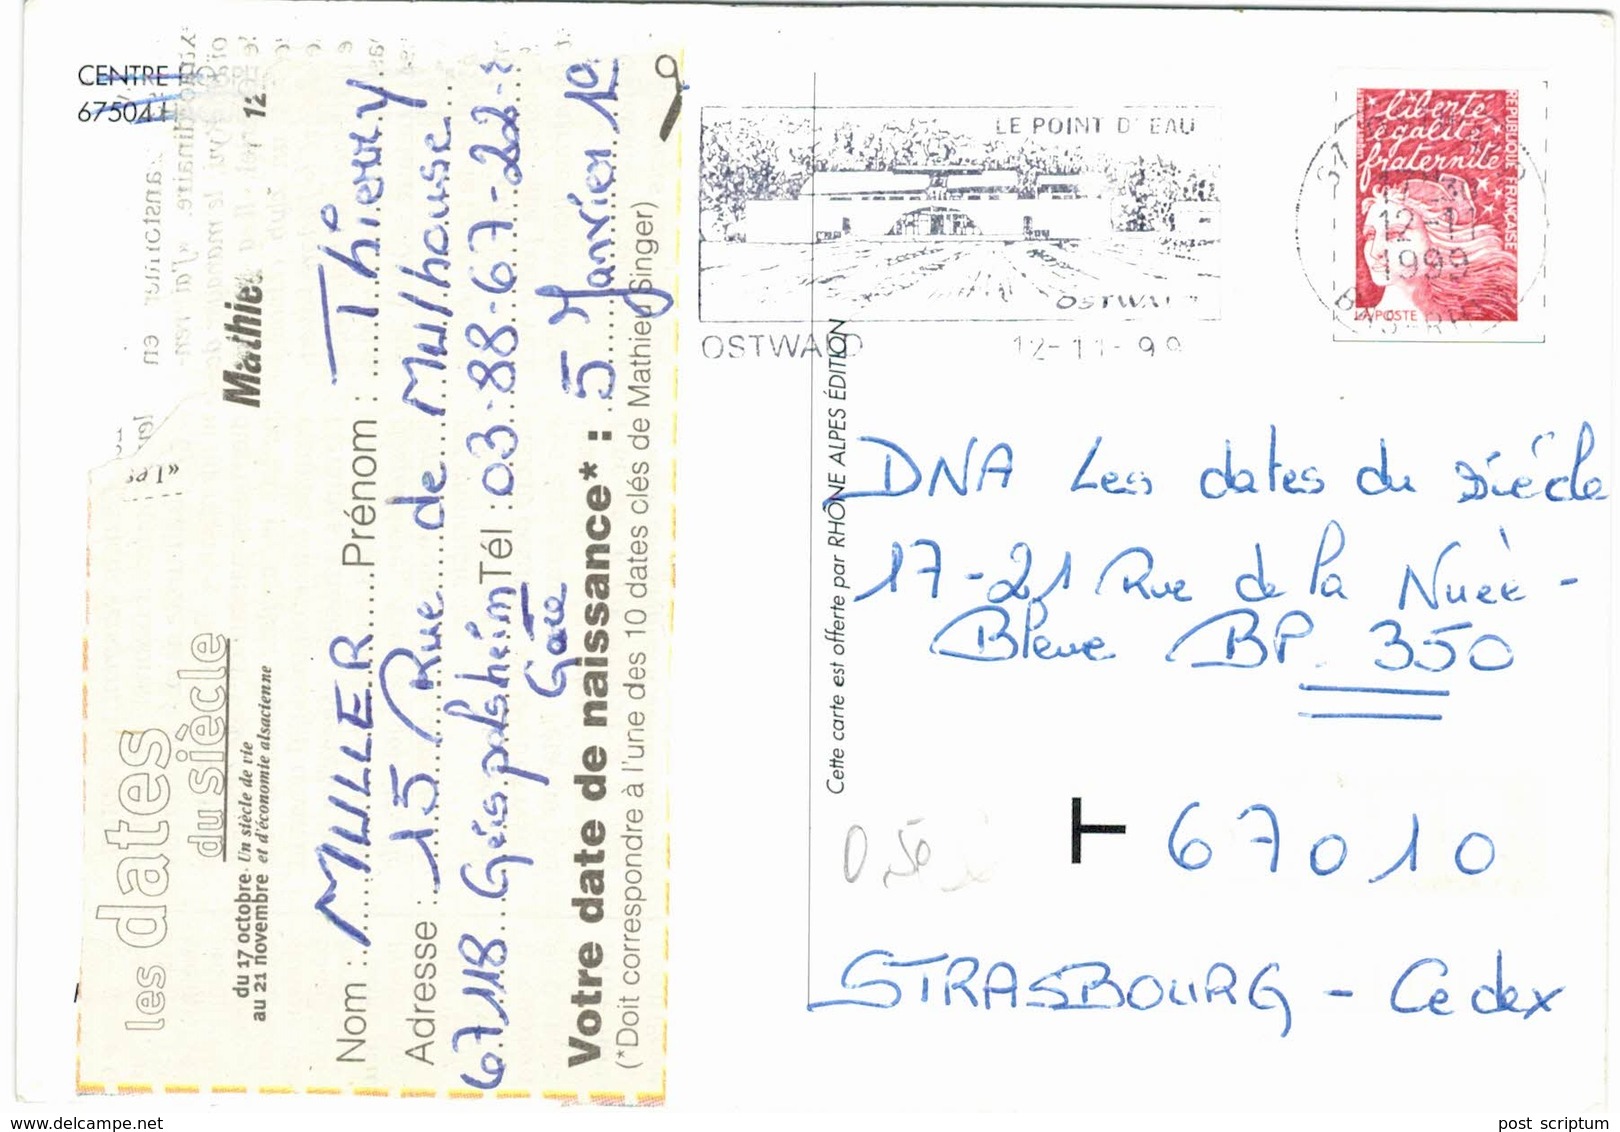 CENTRE
67504
les dates
du siècle
du 17 octobre Un siècle de vie
au 21 novembre et d'économie alsacienne
Mathieu
12
«Les
en
Nom : MULLER Prénom : Thierry
Adresse : 15 Rue de Mulhouse
67118 Geispolsheim Tél : 03-88-67-22-
Gare
Votre date de naissance* : 5 Janvier 19
(*Doit correspondre à l'une des 10 dates clés de Mathieu Singer)
LE POINT D'EAU
OSTWALD
OSTWALD 12-11-99
Cette carte est offerte par RHÔNE ALPES ÉDITION
liberté
égalité
fraternité
REPUBLIQUE FRANÇAISE
LA POSTE
12-11
1999
BAS-RHIN
DNA Les dates du siécle
17-21 Rue de la Nuée-
Bleue BP. 350
T 67010
STRASBOURG - Cedex
0,50
post scriptum